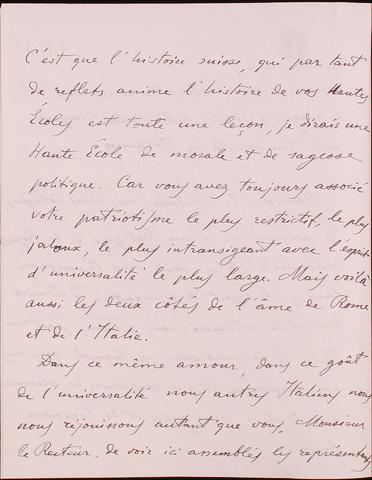 C'est que l'histoire suisse, qui par tant
de reflets anime l'histoire de vos Hautes
Écoles est toute une leçon, je dirais une
Haute École de morale et de sagesse
politique. Car vous avez toujours associé
votre patriotisme le plus restrictif, le plus
jaloux, le plus intransigeant avec l'esprit
d'universalité le plus large. Mais voilà
aussi les deux côtés de l'âme de Rome
et de l'Italie.
Dans ce même amour, dans ce goût
de l'universalité nous autres Italiens nous
nous réjouissons autant que vous, Monsieur
le Recteur, de voir ici assemblés les représentants